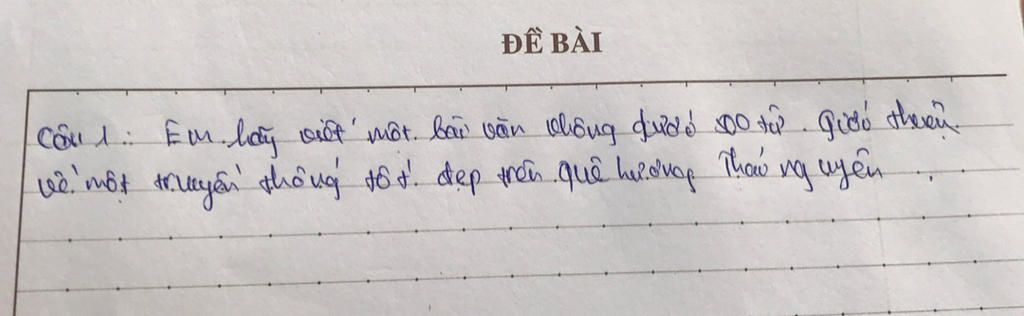 ĐỀ BÀI
Câu 1: Em hãy viết một bài văn không dưới 500 từ. Giới thiệu
về một truyền thống tốt đẹp trên quê hương Thái Nguyên.